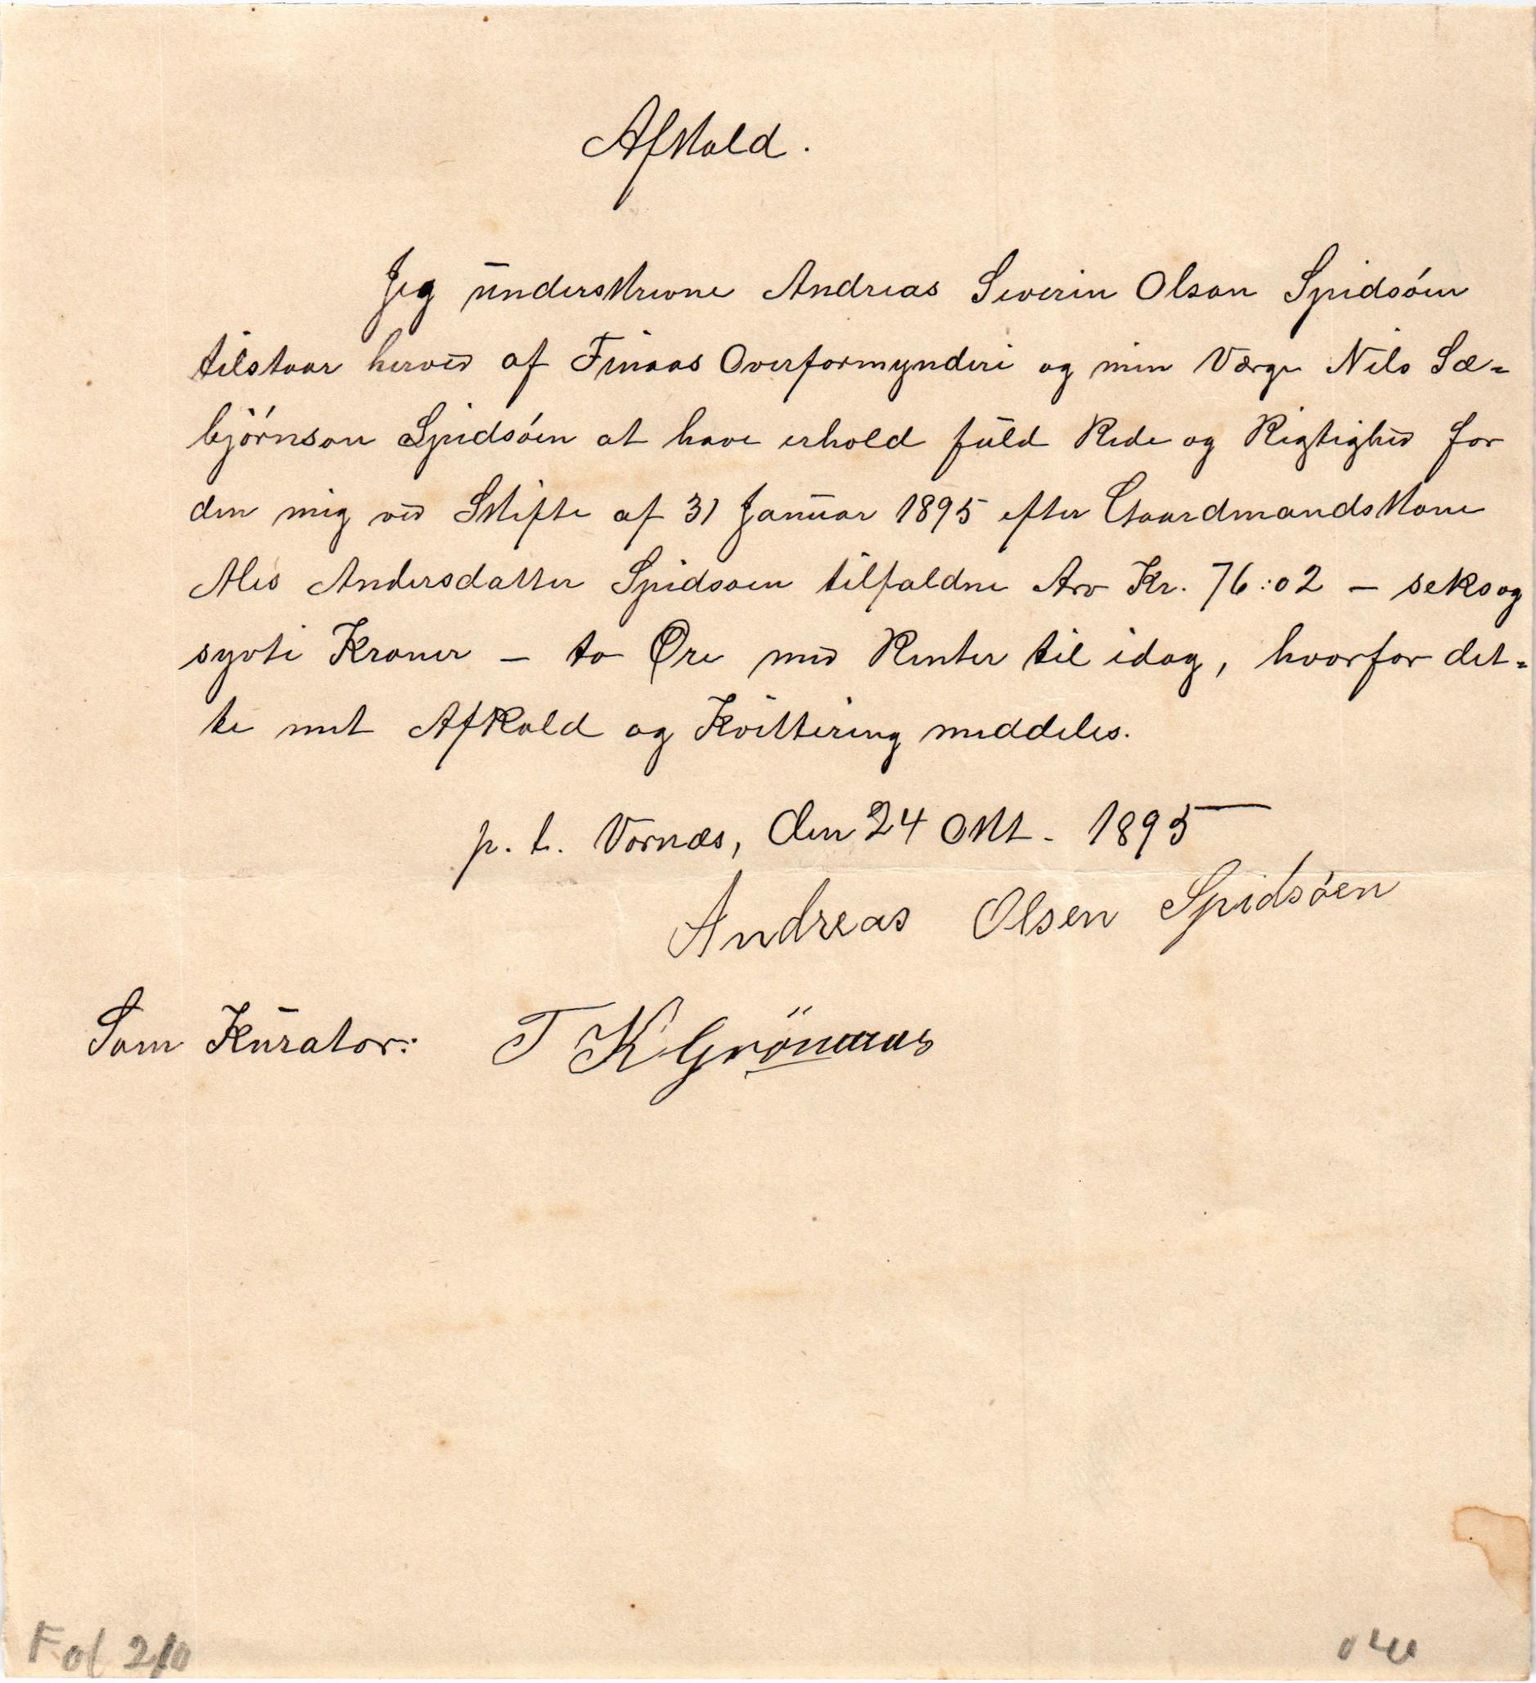 Afkald.
Jeg underskrevne Andreas Severin Olson Spidsöen
tilstaar herved af Finaas Overformynderi og min Værge Nils Sæ-
björnson Spidsöen at have erhold fuld Rede og Rigtighed for
den mig ved Skifte af 31 Januar 1895 efter Gaardmandskone
Ales Andersdatter Spidsoen tilfaldne Arv Kr. 76:02 - seksog
syvti Kroner - to Øre med Renter til idag, hvorfor det-
te mit Afkald og Kvittering meddeles.
p. t. Vornæs, den 24 Okt. 1895
Andreas Olsen Spidsöen
Som Kurator: T K Grönnaas
Fol 210